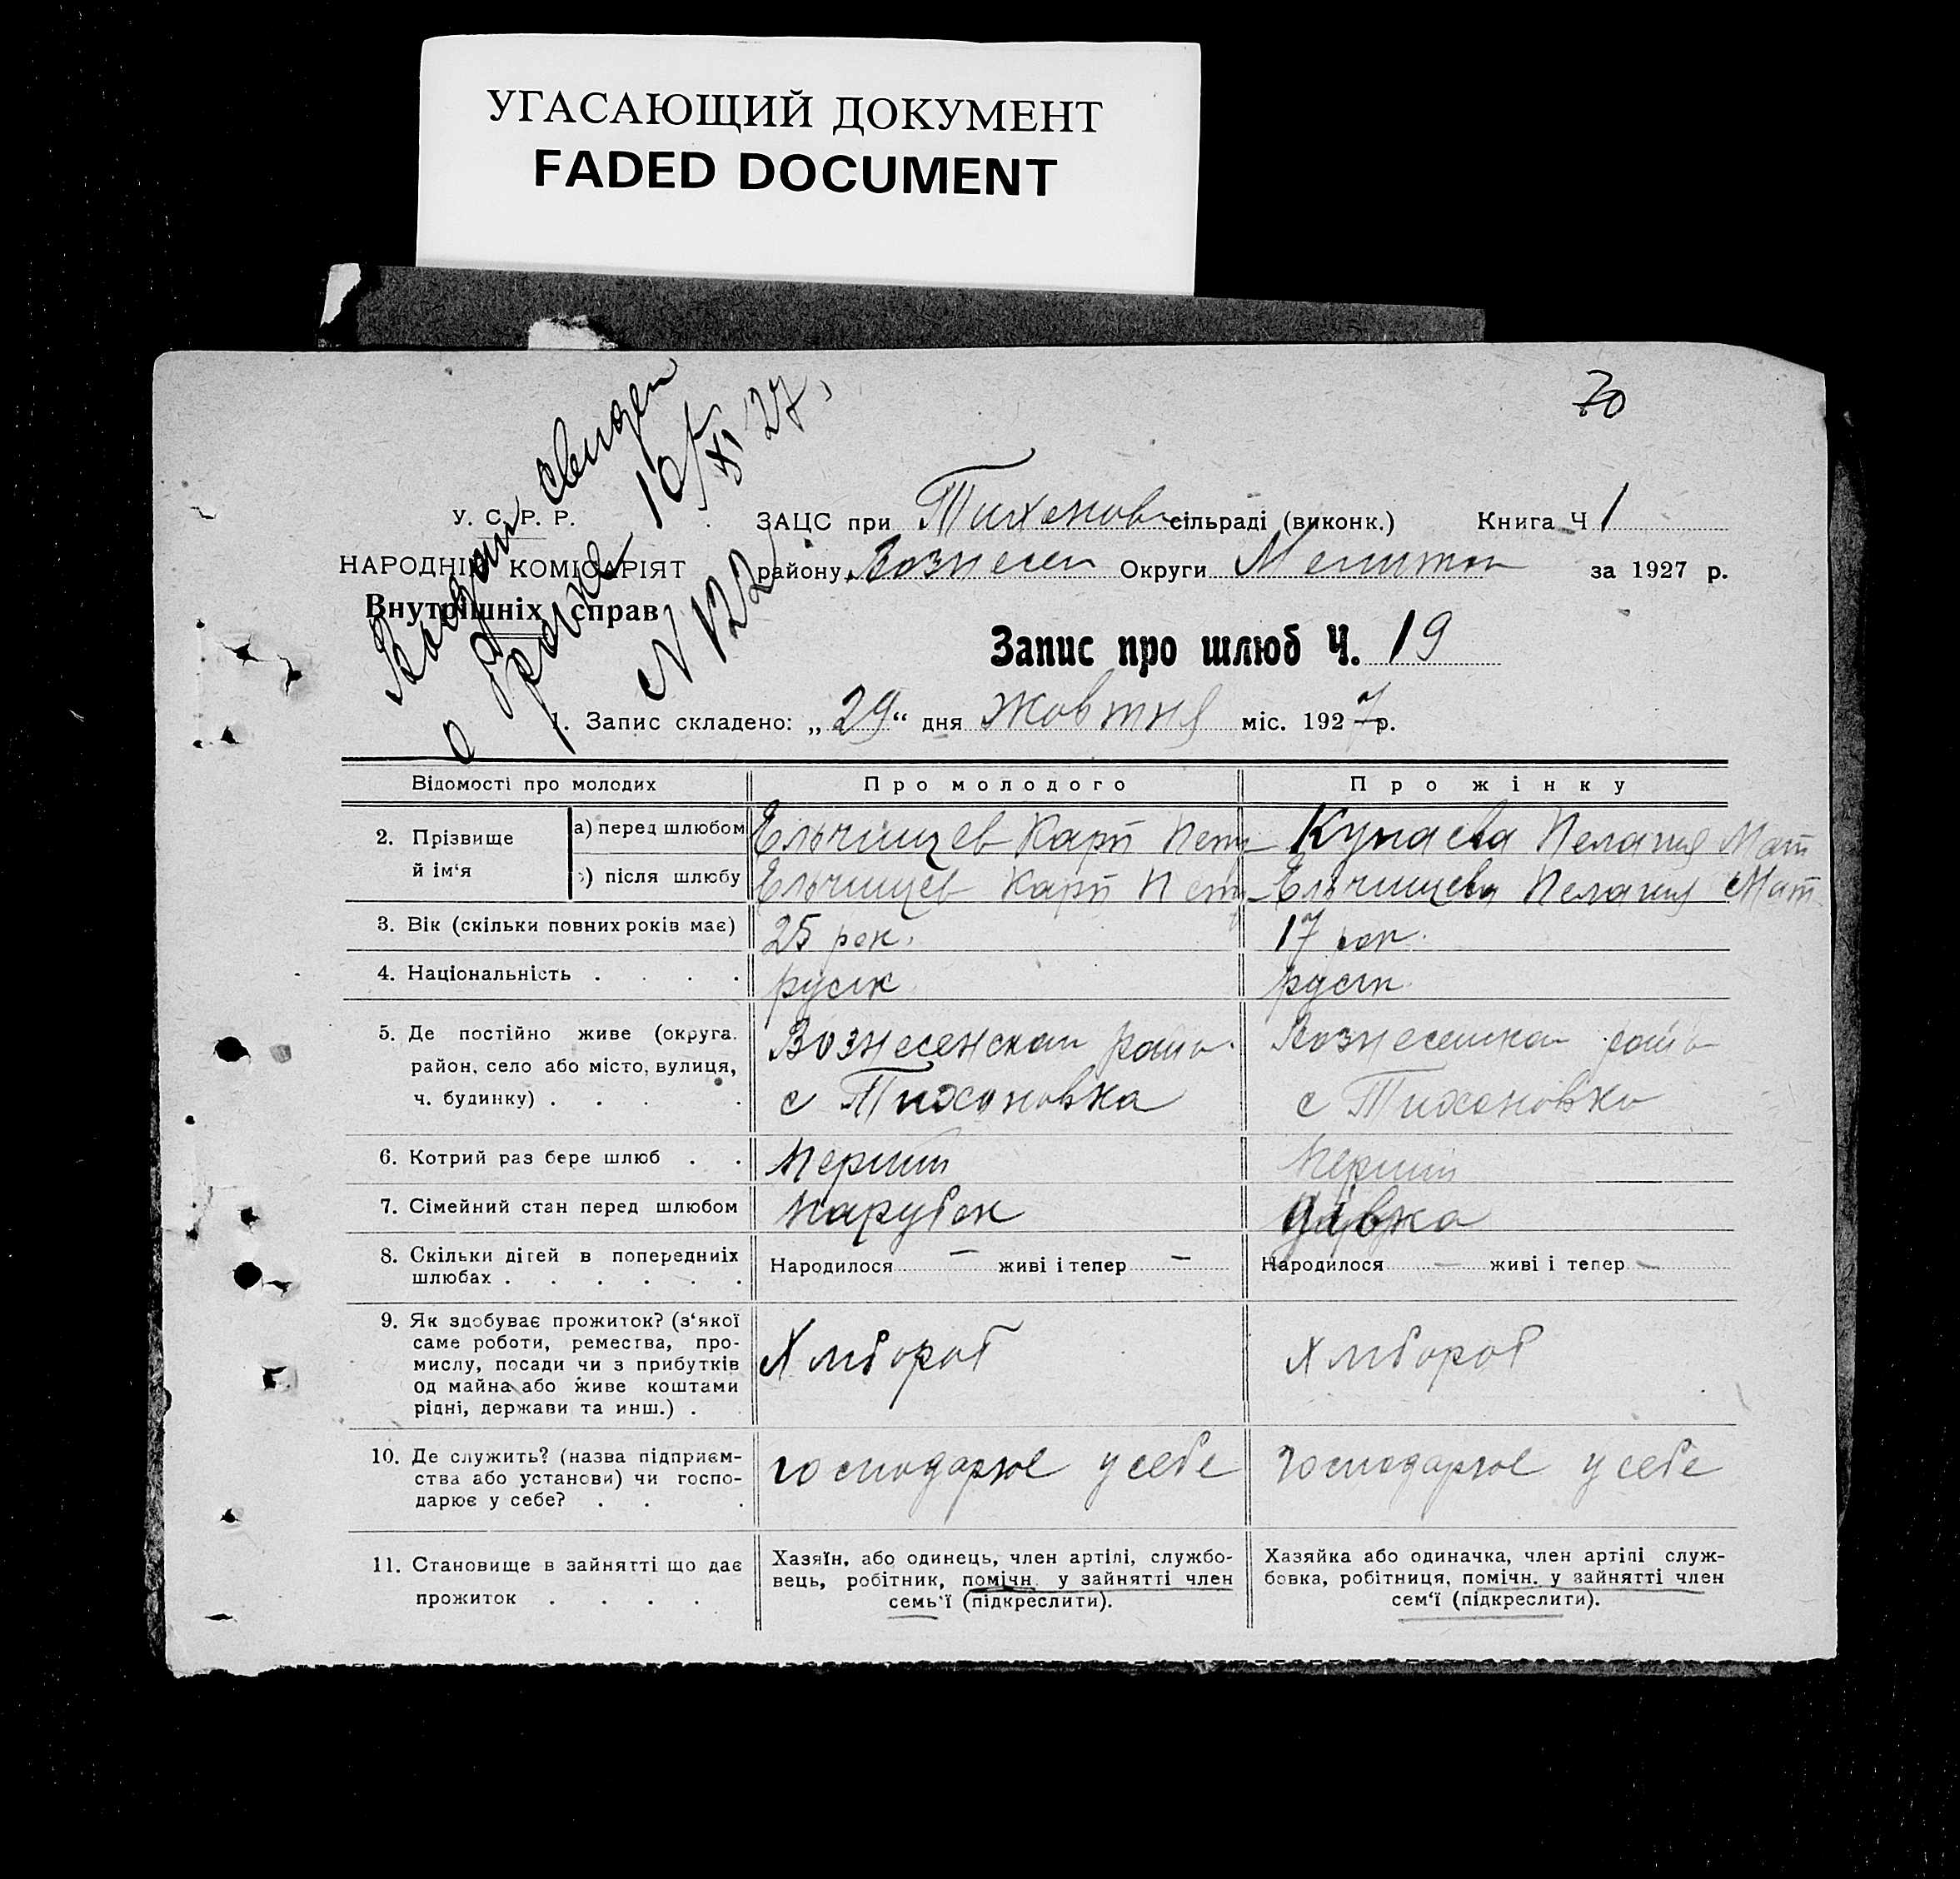 УГАСАЮЩИЙ ДОКУМЕНТ
FADED DOCUMENT
70
У. С. Р. Р.
НАРОДНІЙ КОМІСАРІЯТ
Внутрішніх справ
N 122
ЗАЦС при Тихонов сільраді (виконк.) Книга Ч 1
району Вознесен Округи Мелитоп за 1927 р.
Запис про шлюб Ч. 19
1. Запис складено: „29“ дня Жовтня міс. 1927 р.
Відомості про молодих Про молодого Про жінку
2. Прізвище й ім‘я
а) перед шлюбом Ельчищев Карп Пет Кунаева Пелагия Мат
б) після шлюбу Ельчищев Карп Пет Ельчищева Пелагия Мат
3. Вік (скільки повних років має) 25 рок. 17 рок.
4. Національність . . . . руск руск
5. Де постійно живе (округа. Вознесенскаи район
район, село або місто, вулиця, с Тихоновка с Тихоновка
ч. будинку) . . . .
6. Котрий раз бере шлюб . . перший перший
7. Сімейний стан перед шлюбом парубок дівка
8. Скільки дітей в попередниіх Народилося — живі і тепер — Народилося — живі і тепер —
шлюбах . . . . . .
9. Як здобуває прожиток? (з‘якої
саме роботи, ремества, про-
мислу, посади чи з прибутків Хлібороб Хлібороб
од майна або живе коштами
рідні, держави та инш.) .
10. Де служить? (назва підприєм-
ства або установи) чи госпо- господарює у себе господарює у себе
дарює у себе? . . .
11. Становище в зайнятті що дає
прожиток . . . .
Хазяїн, або одинець, член артілі, службо-
вець, робітник, помічн. у зайнятті член
семь‘ї (підкреслити).
Хазяйка або одиначка, член артілі служ-
бовка, робітниця, помічн. у зайнятті член
сем‘ї (підкреслити).